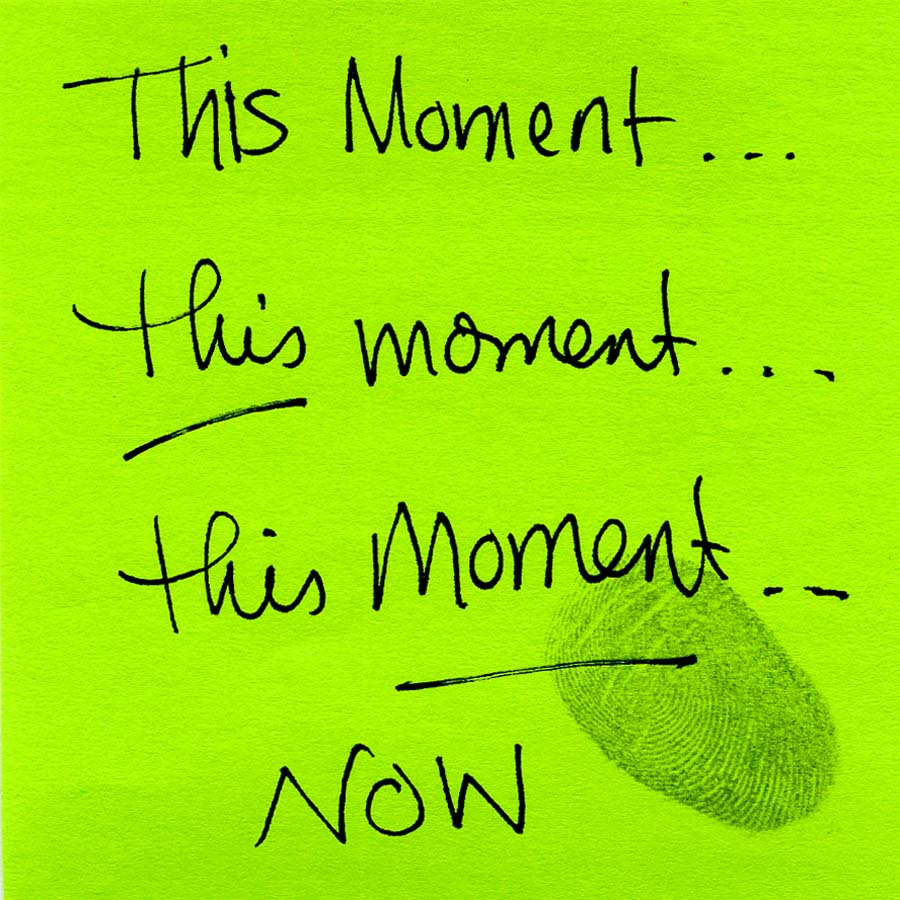 This Moment...
this moment...
this Moment...
NOW